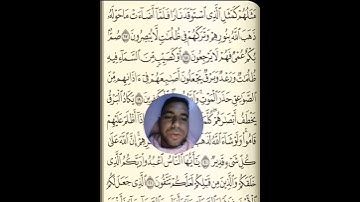 مَثَلُهُمْ كَمَثَلِ ٱلَّذِى ٱسْتَوْقَدَ نَارًا فَلَمَّآ أَضَآءَتْ مَا حَوْلَهُۥ
ذَهَبَ ٱللَّهُ بِنُورِهِمْ وَتَرَكَهُمْ فِى ظُلُمَٰتٍ لَّا يُبْصِرُونَ ١٧ صُمٌّۢ
بُكْمٌ عُمْىٌ فَهُمْ لَا يَرْجِعُونَ ١٨ أَوْ كَصَيِّبٍ مِّنَ ٱلسَّمَآءِ فِيهِ
ظُلُمَٰتٌ وَرَعْدٌ وَبَرْقٌ يَجْعَلُونَ أَصَٰبِعَهُمْ فِىٓ ءَاذَانِهِم مِّنَ
ٱلصَّوَٰعِقِ حَذَرَ ٱلْمَوْتِ يَكَادُ ٱلْبَرْقُ
يَخْطَفُ أَبْصَٰرَهُمْ وَإِذَآ أَظْلَمَ عَلَيْهِمْ
قَامُوا۟ وَلَوْ شَآءَ ٱللَّهُ إِنَّ ٱللَّهَ عَلَىٰ
كُلِّ شَىْءٍ قَدِيرٌ ٢٠ يَٰٓأَيُّهَا ٱلنَّاسُ ٱعْبُدُوا۟ رَبَّكُمُ ٱلَّذِى
خَلَقَكُمْ وَٱلَّذِينَ مِن قَبْلِكُمْ لَعَلَّكُمْ تَتَّقُونَ ٢١ ٱلَّذِى جَعَلَ لَكُمُ